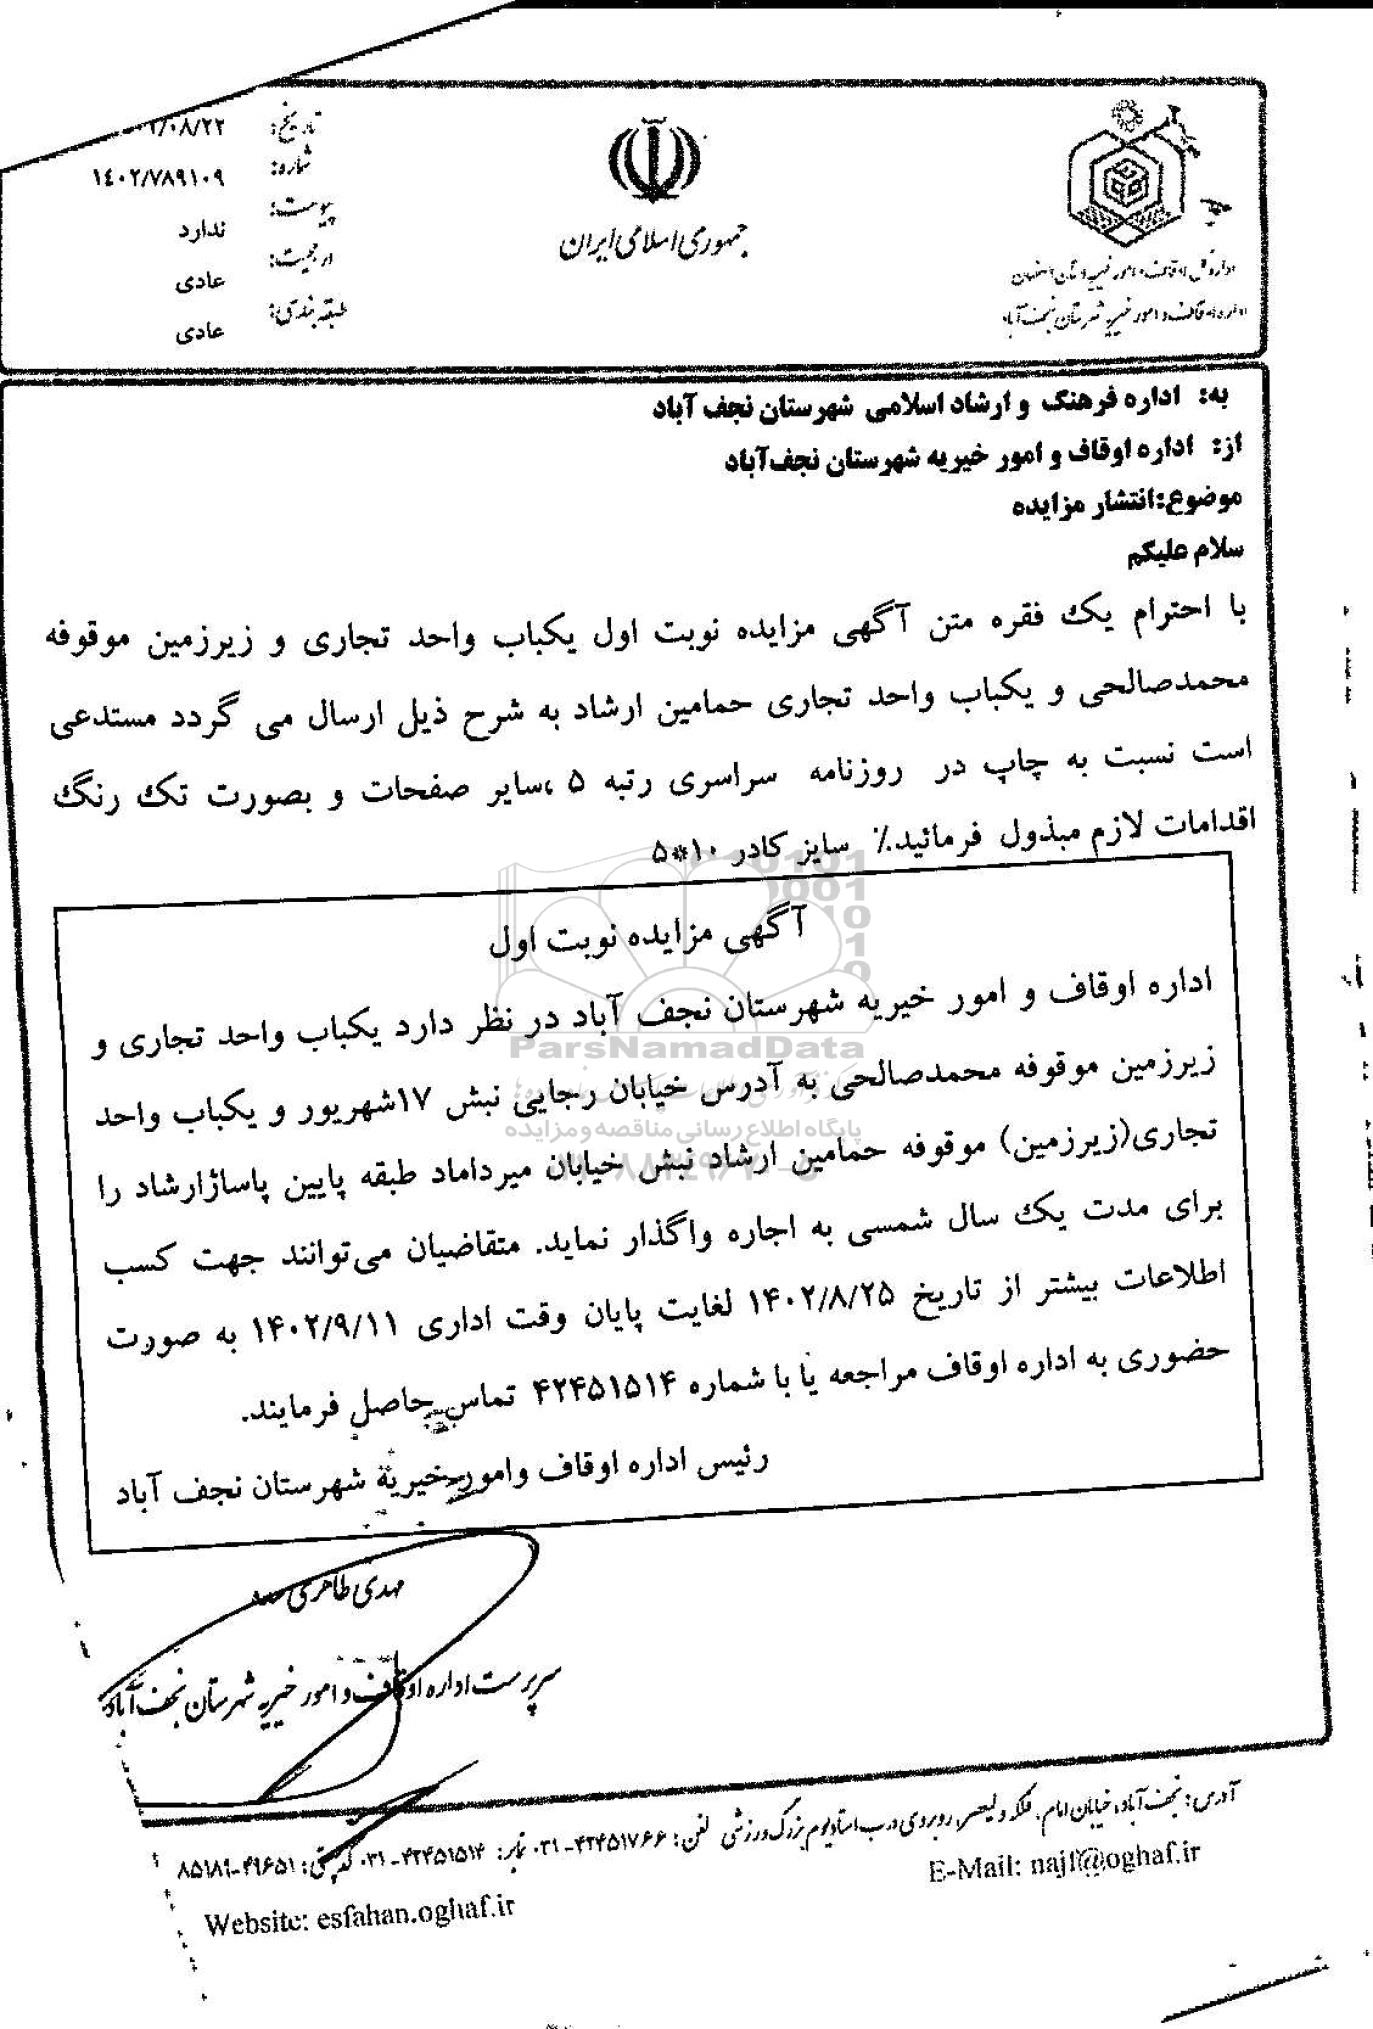 جمهوری اسلامی ایران
اداره کل اوقاف و امور خیریه استان اصفهان
اداره اوقاف و امور خیریه شهرستان نجف آباد
تاریخ: /۰۸/۲۲
شماره: ۱۴۰۲/۷۸۹۱۰۹
پیوست: ندارد
ارجحیت: عادی
طبقه بندی: عادی
به: اداره فرهنگ و ارشاد اسلامی شهرستان نجف آباد
از: اداره اوقاف و امور خیریه شهرستان نجف‌آباد
موضوع:انتشار مزایده
سلام علیکم
با احترام یک فقره متن آگهی مزایده نوبت اول یکباب واحد تجاری و زیرزمین موقوفه
محمدصالحی و یکباب واحد تجاری حمامین ارشاد به شرح ذیل ارسال می گردد مستدعی
است نسبت به چاپ در روزنامه سراسری رتبه ۵ ،سایر صفحات و بصورت تک رنگ
اقدامات لازم مبذول فرمائید.٪ سایز کادر ۱۰*۵
آگهی مزایده نوبت اول
اداره اوقاف و امور خیریه شهرستان نجف آباد در نظر دارد یکباب واحد تجاری و
زیرزمین موقوفه محمدصالحی به آدرس خیابان رجایی نبش ۱۷شهریور و یکباب واحد
تجاری(زیرزمین) موقوفه حمامین ارشاد نبش خیابان میرداماد طبقه پایین پاساژارشاد را
برای مدت یک سال شمسی به اجاره واگذار نماید. متقاضیان می‌توانند جهت کسب
اطلاعات بیشتر از تاریخ ۱۴۰۲/۸/۲۵ لغایت پایان وقت اداری ۱۴۰۲/۹/۱۱ به صورت
حضوری به اداره اوقاف مراجعه یا با شماره ۴۲۴۵۱۵۱۴ تماس حاصل فرمایند.
رئیس اداره اوقاف وامور خیریه شهرستان نجف آباد
ParsNamadData
پایگاه اطلاع رسانی مناقصه و مزایده
مهدی طاهری
سرپرست اداره اوقاف و امور خیریه شهرستان نجف آباد
آدرس: نجف آباد، خیابان امام، فلکه ولیعصر، روبروی درب استادیوم بزرگ ورزشی تلفن: ۴۲۴۵۱۷۶۶-۰۳۱ نمابر: ۴۲۴۵۱۵۱۴-۰۳۱ کدپستی: ۴۹۶۵۱-۸۵۱۸۹
E-Mail: najf@oghaf.ir
Website: esfahan.oghaf.ir